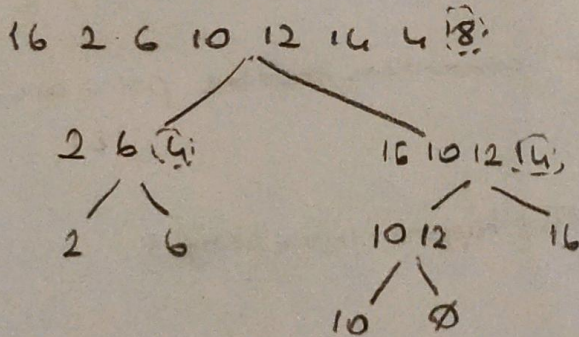 16 2 6 10 12 14 4 8
2 6 4 16 10 12 14
2 6 10 12 16
10 Ø